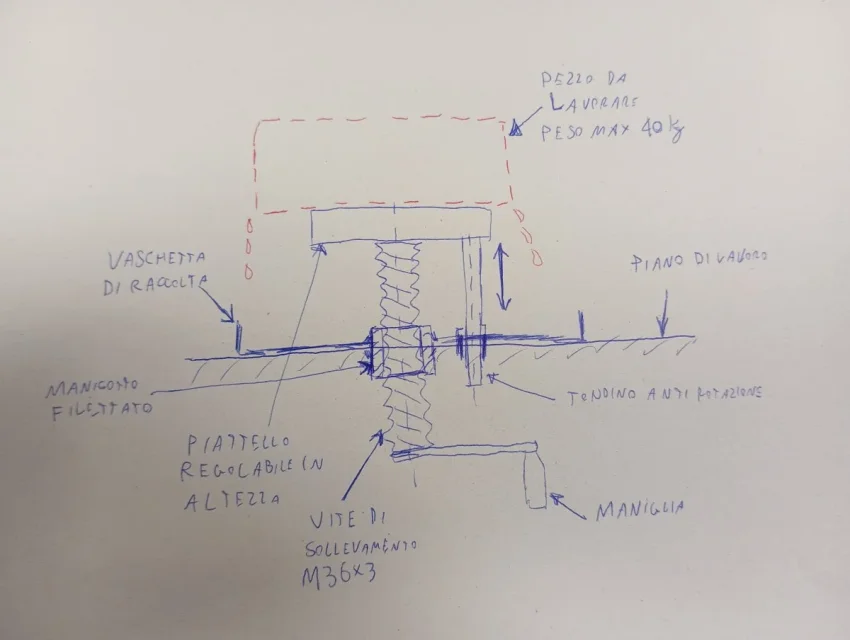 PEZZO DA
LAVORARE
PESO MAX 40 kg
VASCHETTA
DI RACCOLTA
PIANO DI LAVORO
MANICOTTO
FILETTATO
TONDINO ANTI ROTAZIONE
PIATTELLO
REGOLABILE IN
ALTEZZA
MANIGLIA
VITE DI
SOLLEVAMENTO
M36x3